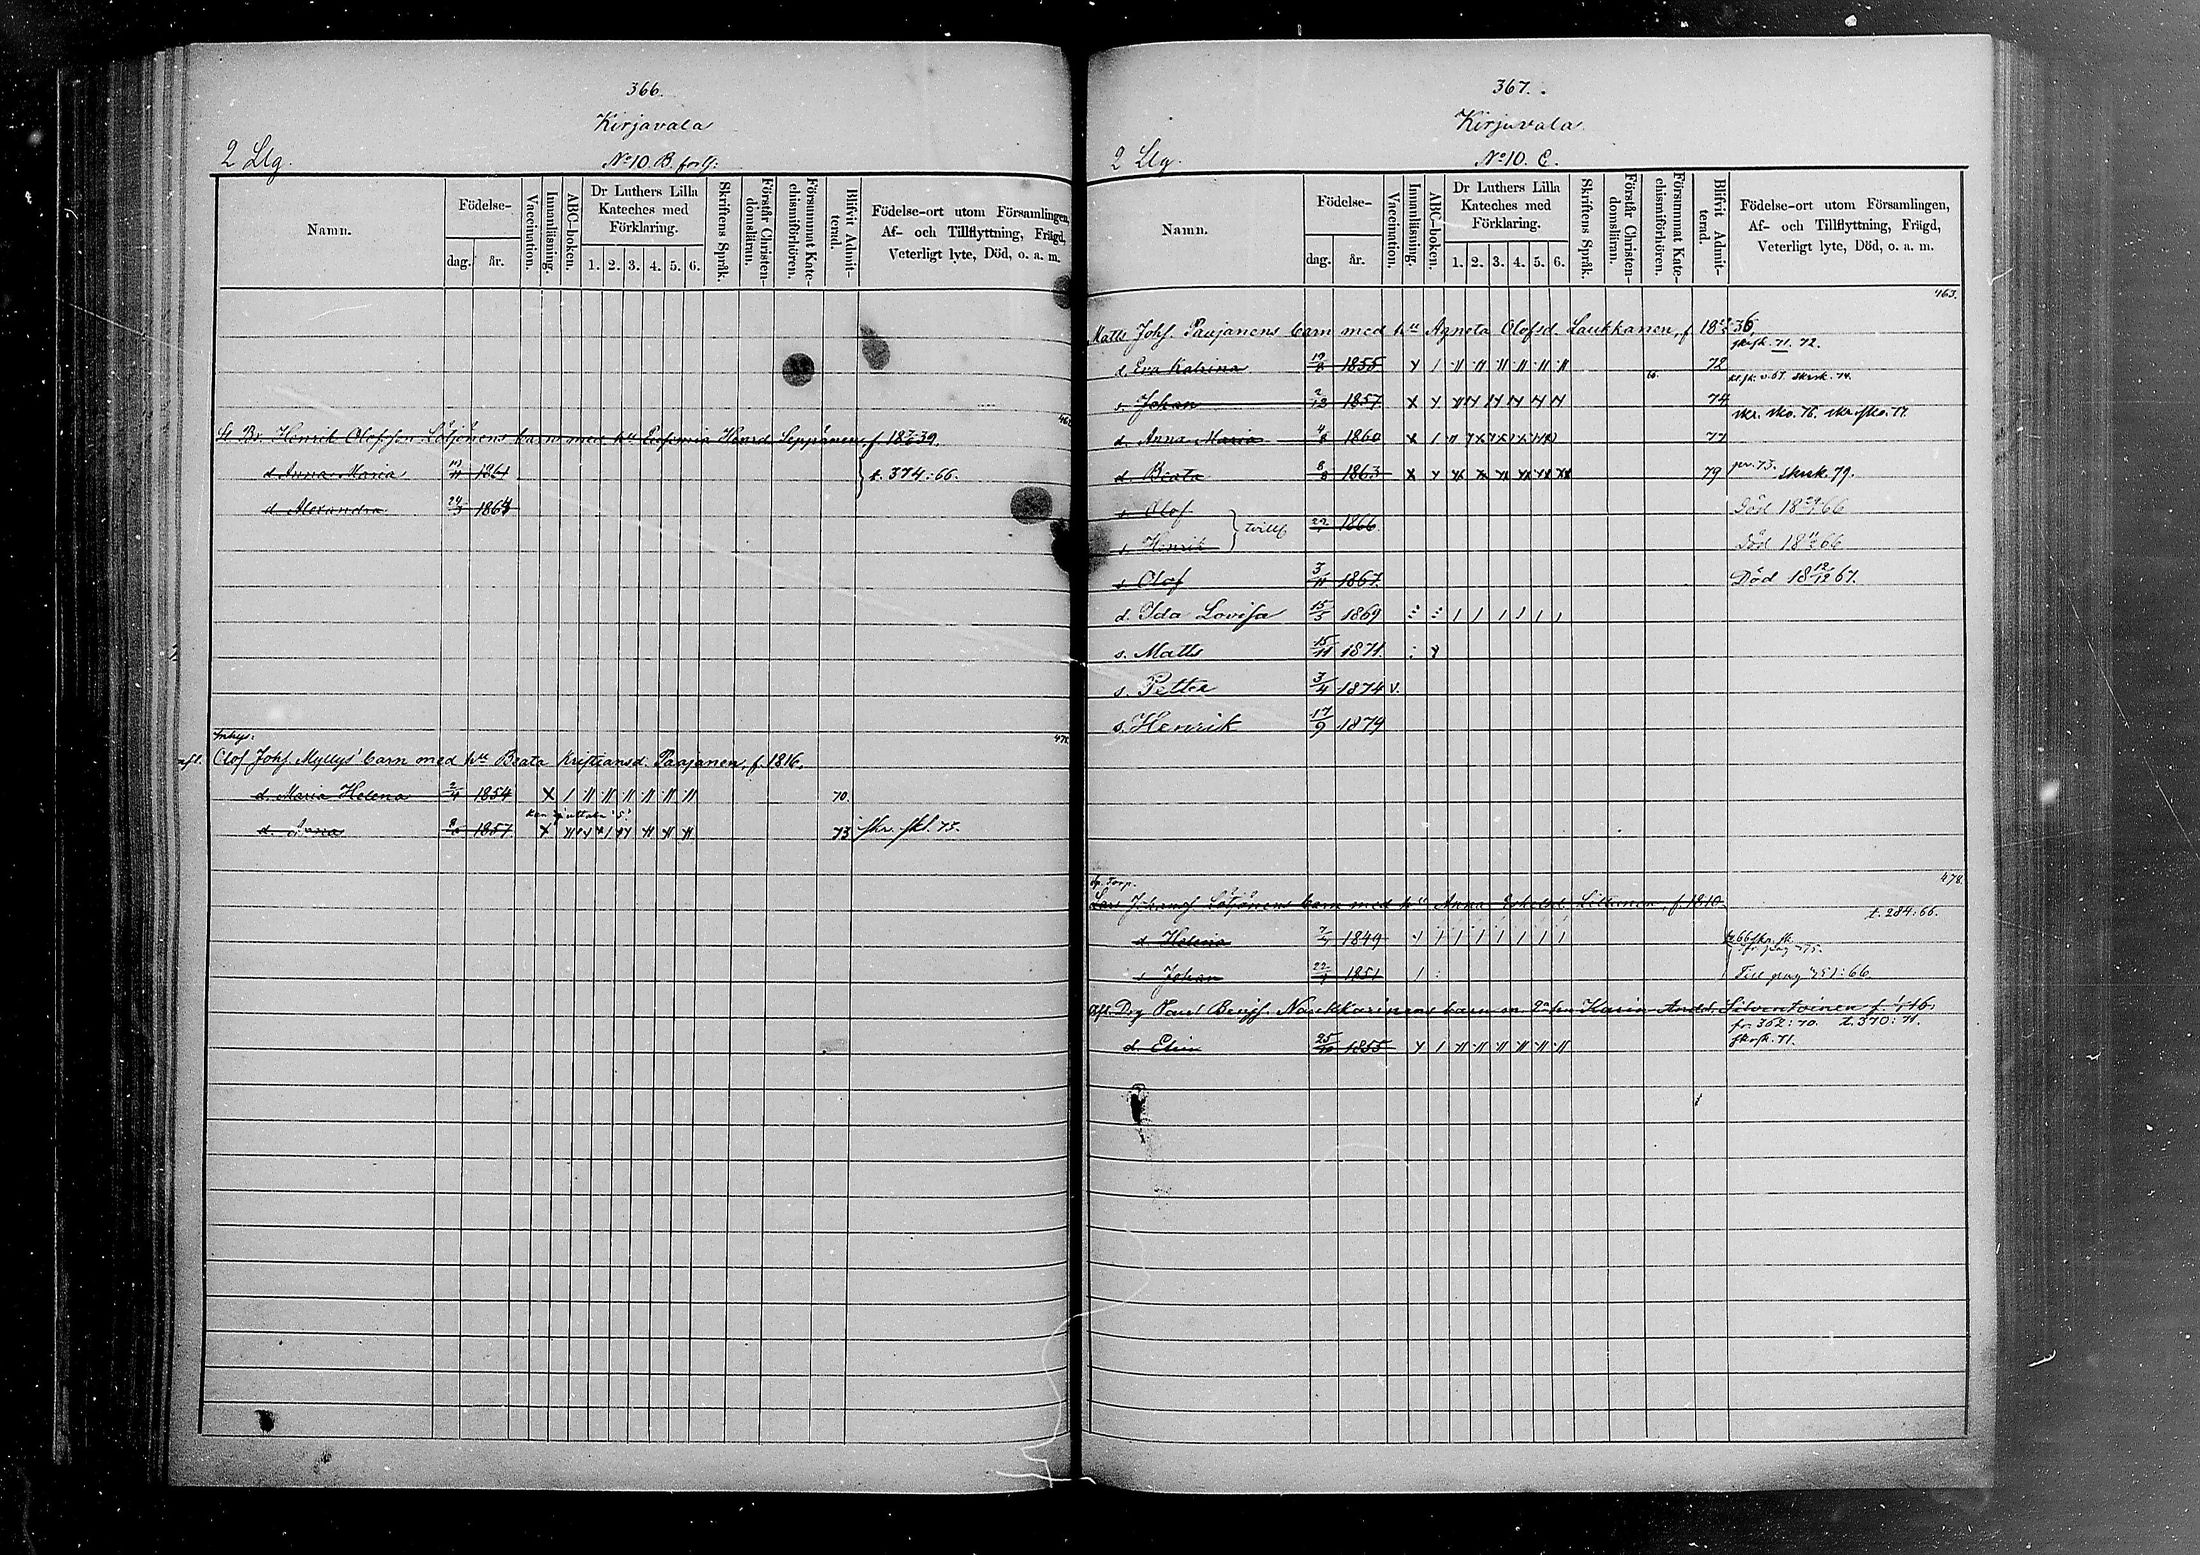 366.
Kirjavala
2 Llg. No 10. B. forts:
Namn.
Födelse-
dag. år.
Vaccination.
Innanläsning.
ABC-boken.
Dr Luthers Lilla
Kateches med
Förklaring.
1. 2. 3. 4. 5. 6.
Skriftens Språk.
Förstår Christen-
domslärann.
Försummat Kate-
chismiförhören.
Blifvit Admit-
terad.
Födelse-ort utom Församlingen,
Af- och Tillflyttning, Frägd,
Veterligt lyte, Död, o. a. m.
Br. Henrik Olofsson Lötjönens barn med hu Eufemia Henrd. Seppänen, f. 18 39.
d. Anna Maria 1861 t. 374:66.
d. Alexandra 24/3 1864
Inhys:
Olof Johs. Myllys' barn med hu Beata Kristiansd. Paajanen, f. 1816.
d. Maria Helena 2/4 1854 70.
d. Anna 1857. 73 skr. skl. 73.
367.
Kirjavala
2 Llg. No 10. C.
Namn.
Födelse-
dag. år.
Vaccination.
Innanläsning.
ABC-boken.
Dr Luthers Lilla
Kateches med
Förklaring.
1. 2. 3. 4. 5. 6.
Skriftens Språk.
Förstår Christen-
domslärann.
Försummat Kate-
chismiförhören.
Blifvit Admit-
terad.
Födelse-ort utom Församlingen,
Af- och Tillflyttning, Frägd,
Veterligt lyte, Död, o. a. m.
463.
Matts Johs. Paajanens barn med hu Agneta Olofsd. Laukkanen, f. 18 36,
71. 72.
d. Eva Katrina 1855 72
s. Johan 2/12 1857 74
d. Anna Maria 4/8 1860 77
d. Beata 8/8 1863 79 skrsk. 79.
s. Olof
tvill. 1866. Död 18 66
s. Henrik Död 18 66
s. Olof 3/11 1867. Död 18 12/12 67.
d. Ida Lovisa 15/5 1869
s. Matts 15/11 1871.
s. Petter 3/4 1874 v.
s. Henrik 17/9 1879
478.
Lars Johanss. Lötjönens barn med hu Anna Littunen, f. 1810.
t. 284:66.
d. Helena 1849
s. Johan 1851 Till pag 751:66
Drg Paul Bengts. Naukkarinens barn m. 2a hu Karin Andd. Silventoinen f.
fr. 362:70. t. 370:71.
d. Elin 25/10 1855 skrsk. 71.